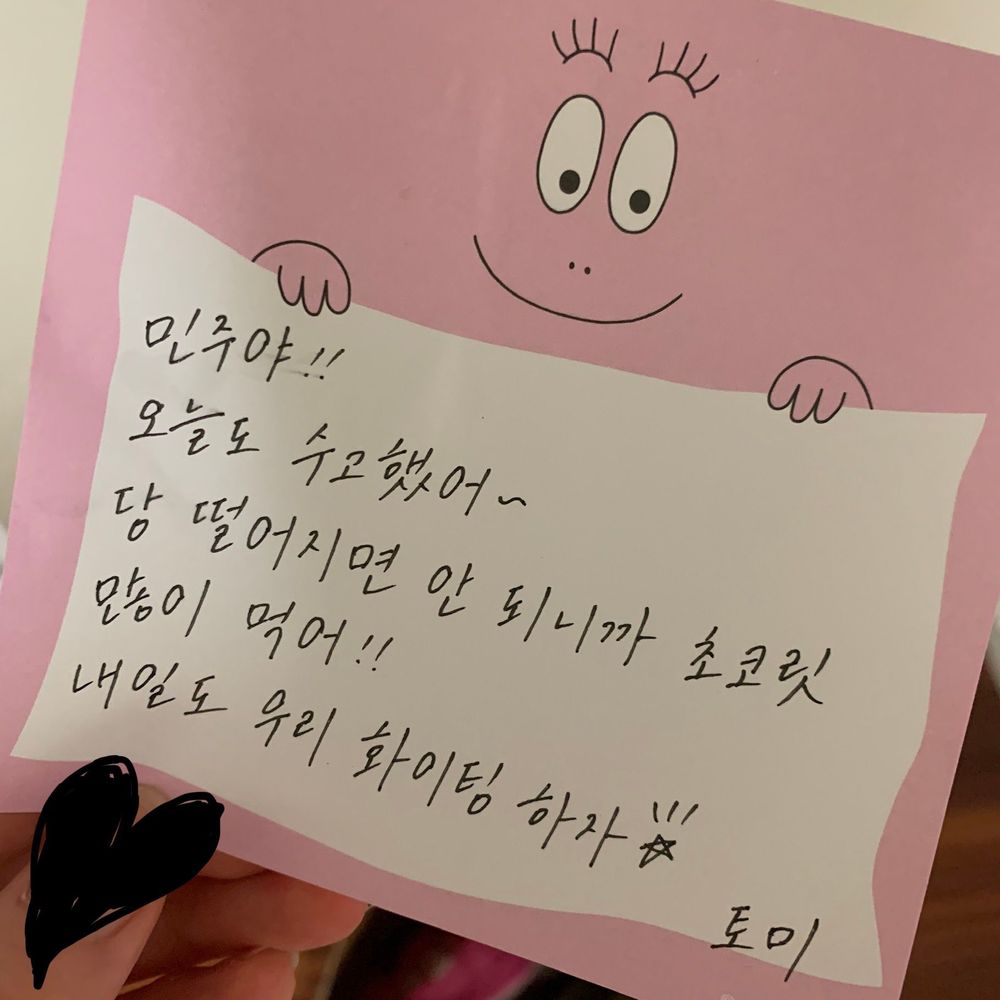 민주야!!
오늘도 수고했어~
당 떨어지면 안 되니까 초코릿
많이 먹어!!
내일도 우리 화이팅 하자☆
토미